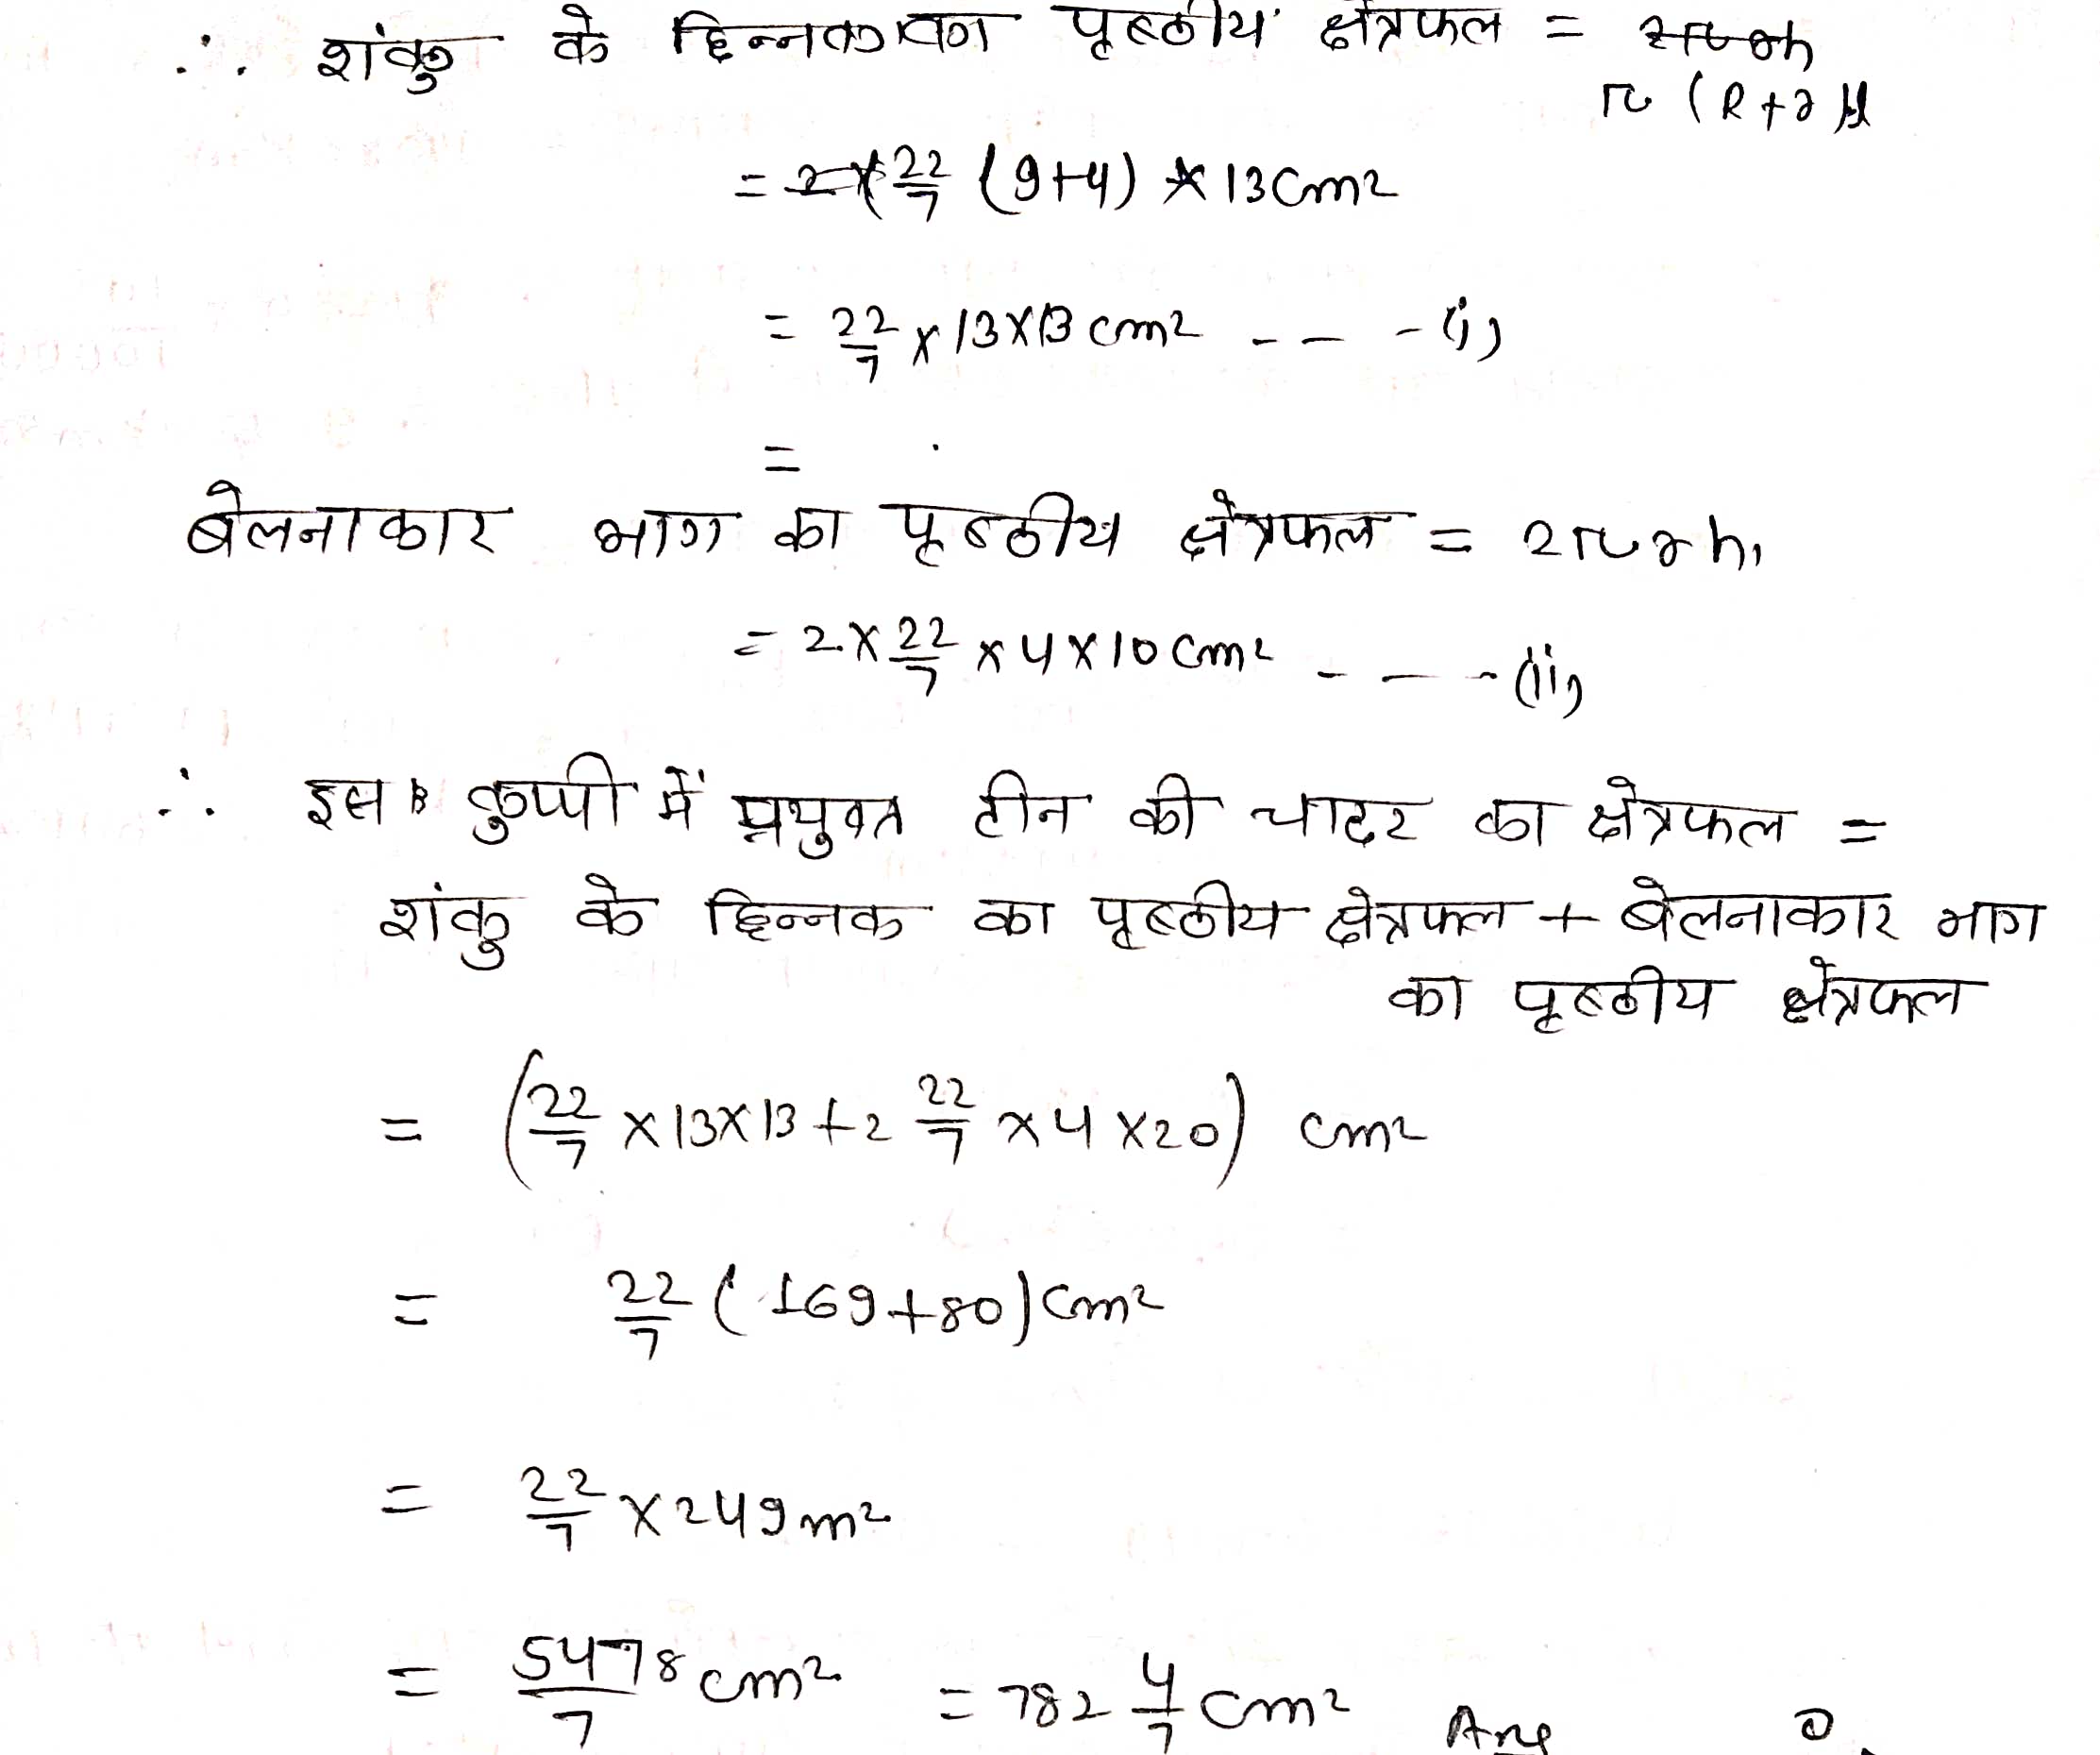 ∴ शंकु के छिन्नक का पृष्ठीय क्षेत्रफल = 2πrh
π (R+r)l
= 2× 22/7 (9+4) × 13 cm²
= 22/7 × 13×13 cm² - - - (i)
=
बेलनाकार भाग का पृष्ठीय क्षेत्रफल = 2πrh₁
= 2× 22/7 × 4×10 cm² - - - (ii)
∴ इस कुप्पी में प्रयुक्त टीन की चादर का क्षेत्रफल =
शंकु के छिन्नक का पृष्ठीय क्षेत्रफल + बेलनाकार भाग
का पृष्ठीय क्षेत्रफल
= (22/7 × 13×13 + 2 22/7 × 4 × 20) cm²
= 22/7 (169+80) cm²
= 22/7 × 249 m²
= 5478/7 cm² = 782 4/7 cm² Ans